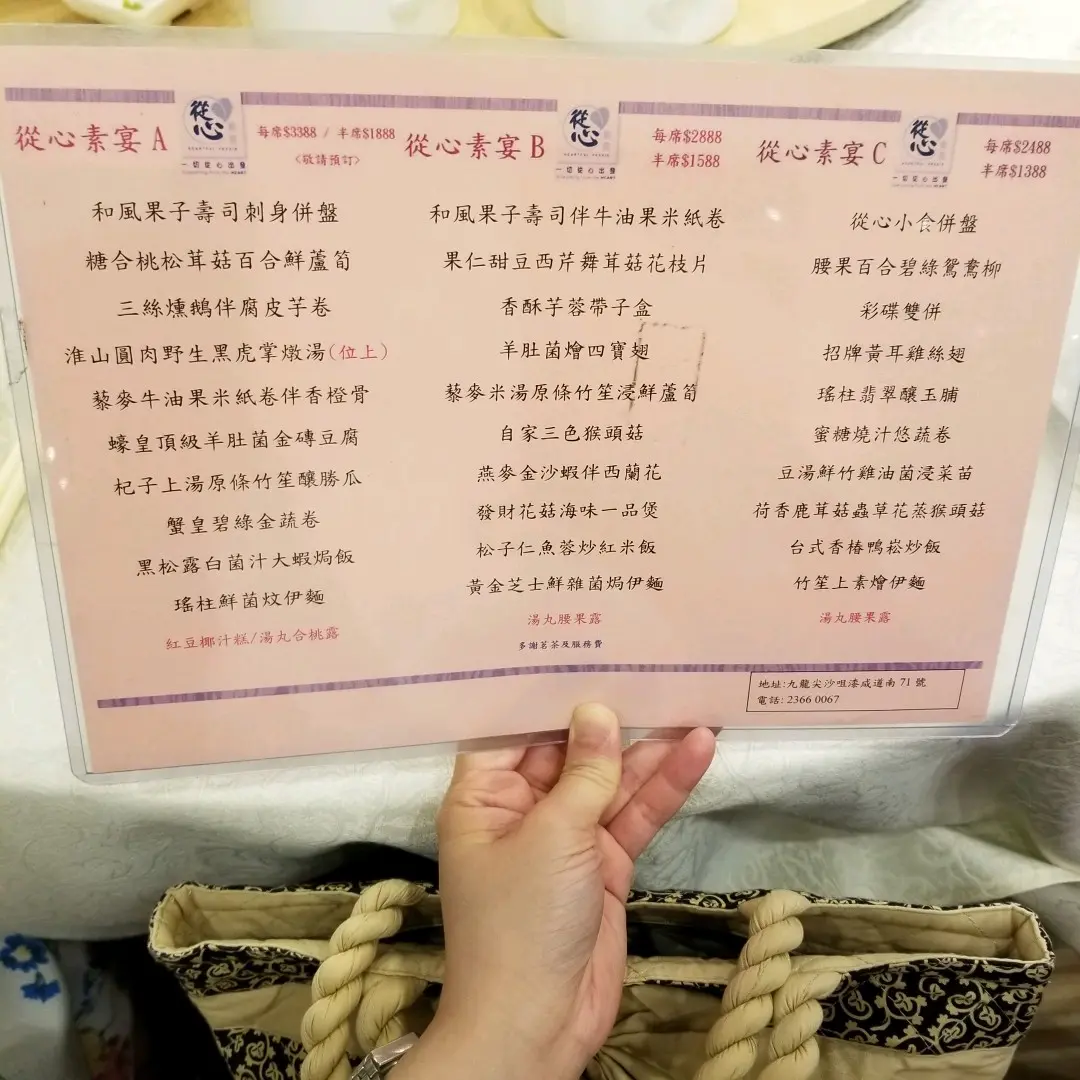 從心素宴 A
從心
一切從心出發
每席$3388 / 半席$1888
<敬請預訂>
和風果子壽司刺身併盤
糖合桃松茸菇百合鮮蘆筍
三絲燻鵝伴腐皮芋卷
淮山圓肉野生黑虎掌燉湯(位上)
藜麥牛油果米紙卷伴香橙骨
蠔皇頂級羊肚菌金磚豆腐
杞子上湯原條竹笙釀勝瓜
蟹皇碧綠金蔬卷
黑松露白菌汁大蝦焗飯
瑤柱鮮菌炆伊麵
紅豆椰汁糕/湯丸合桃露
從心素宴 B
從心
一切從心出發
每席$2888
半席$1588
和風果子壽司伴牛油果米紙卷
果仁甜豆西芹舞茸菇花枝片
香酥芋蓉帶子盒
羊肚菌燴四寶翅
藜麥米湯原條竹笙浸鮮蘆筍
自家三色猴頭菇
燕麥金沙蝦伴西蘭花
發財花菇海味一品煲
松子仁魚蓉炒紅米飯
黃金芝士鮮雜菌焗伊麵
湯丸腰果露
多謝茗茶及服務費
從心素宴 C
從心
一切從心出發
每席$2488
半席$1388
從心小食併盤
腰果百合碧綠鴛鴦柳
彩碟雙併
招牌黃耳雞絲翅
瑤柱翡翠釀玉脯
蜜糖燒汁悠蔬卷
豆湯鮮竹雞油菌浸菜苗
荷香鹿茸菇蟲草花蒸猴頭菇
台式香椿鴨崧炒飯
竹笙上素燴伊麵
湯丸腰果露
地址:九龍尖沙咀漆咸道南 71 號
電話: 2366 0067